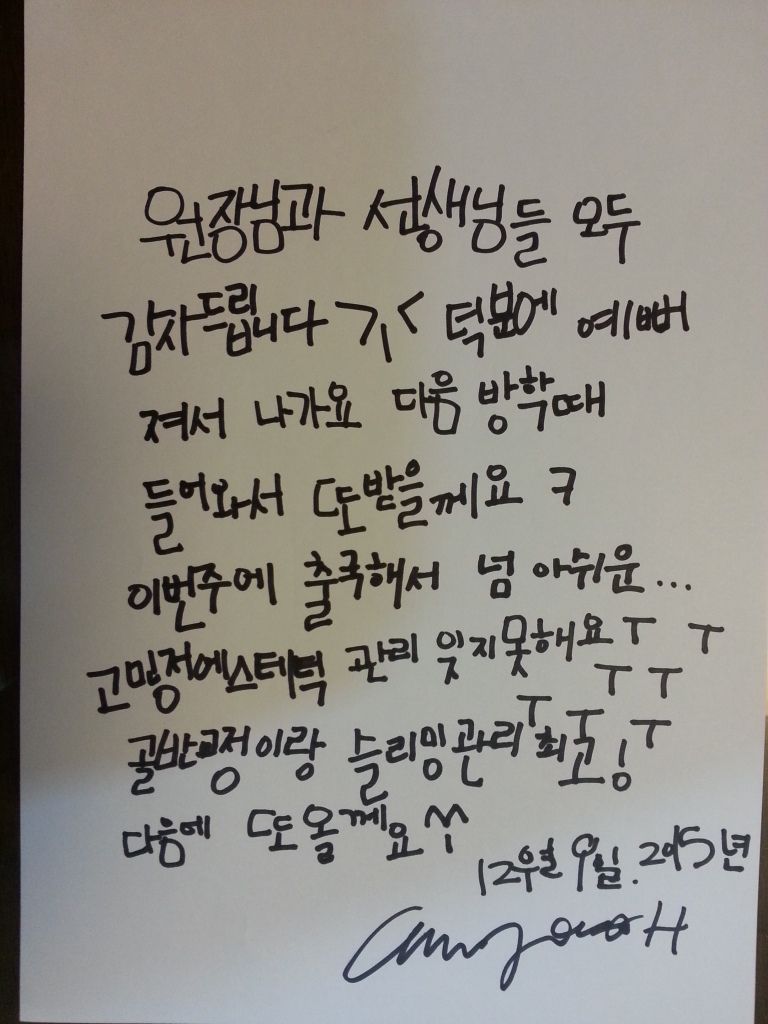 원장님과 선생님들 모두
감사드립니다 ㅋ 덕분에 예뻐
져서 나가요 다음 방학때
들어와서 또 받을께요 ㅋ
이번주에 출국해서 넘 아쉬운...
고밍정에스테틱 관리 잊지못해요 ㅜ ㅜ
ㅜ ㅜ
골반교정이랑 슬리밍관리 ㅜ ㅜ ㅜ 최고!
다음에 또 올께요 ^^
12월 9일. 2015년